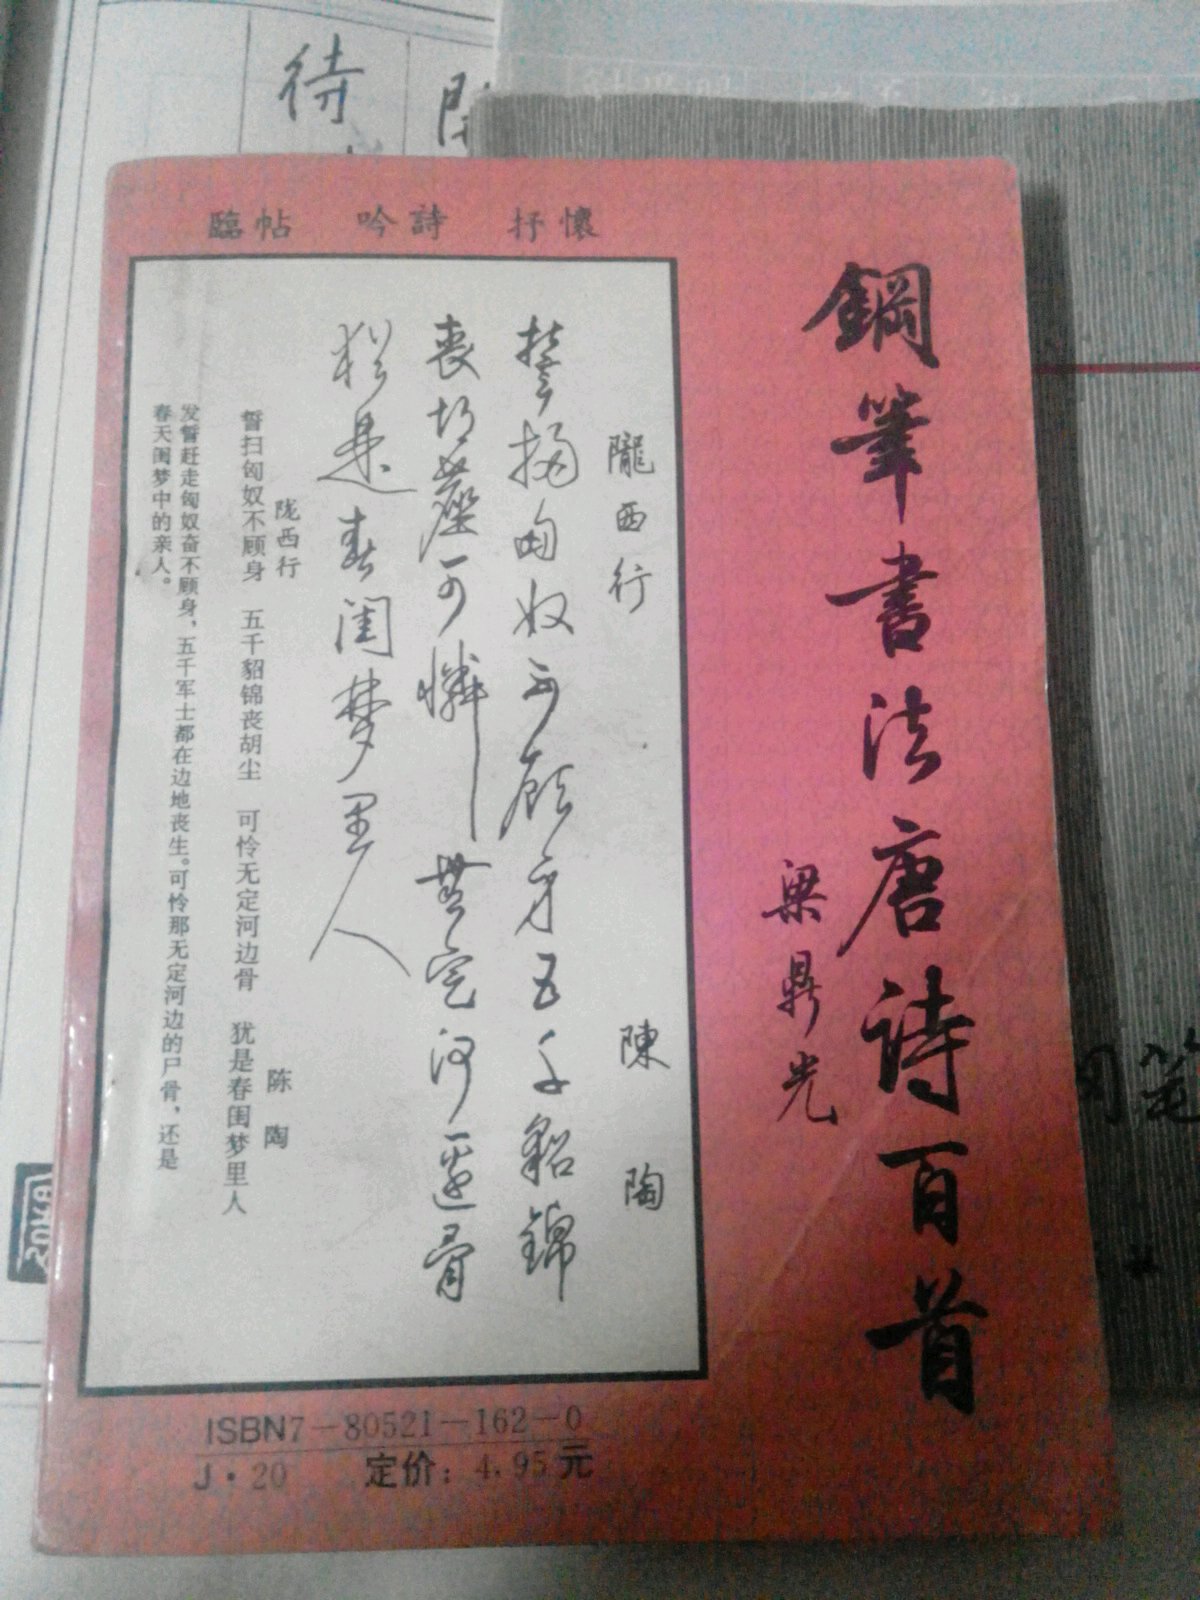 待
臨帖 吟詩 抒懷
鋼筆書法唐詩百首
梁鼎光
隴西行 陳陶
誓掃匈奴不顧身五千貂錦
喪胡塵可憐無定河邊骨
猶是春閨夢里人
陇西行 陈陶
誓扫匈奴不顾身 五千貂锦丧胡尘 可怜无定河边骨 犹是春闺梦里人
发誓赶走匈奴奋不顾身，五千军士都在边地丧生。可怜那无定河边的尸骨，还是
春天闺梦中的亲人。
ISBN7-80521-162-0
J·20 定价：4.95元